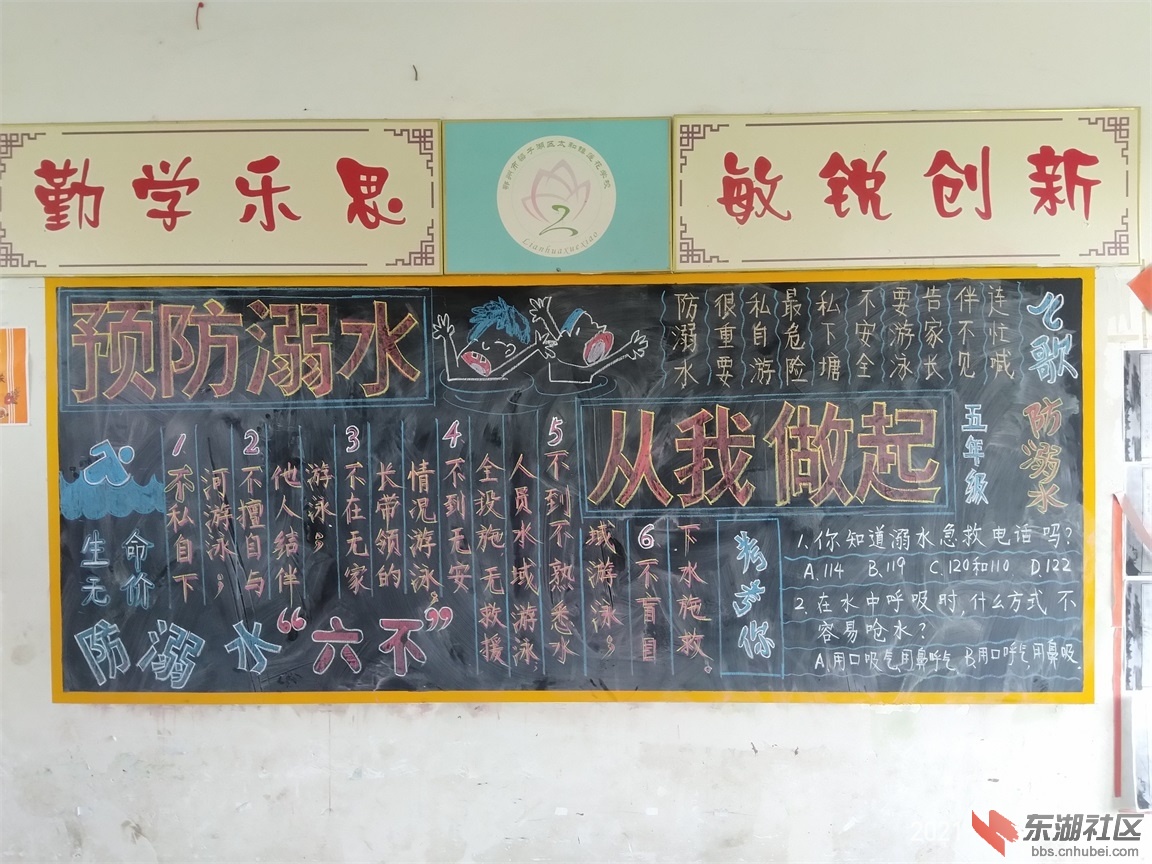 勤学乐思
Lianhuaxuexiao
敏锐创新
预防溺水
从我做起
儿歌
防溺水
五年级
防溺水
很重要
私自游
最危险
私下塘
不安全
要游泳
告家长
伴不见
连忙喊
生命
无价
防溺水“六不”
1不私自下
河游泳；
2不擅自与
他人结伴
游泳；
3不在无家
长带领的
情况游泳；
4不到无安
全设施无救援
人员水域游泳；
5不到不熟悉水
域游泳；
6不盲目
下水施救。
考考你
1.你知道溺水急救电话吗？
A.114 B.119 C.120和110 D.122
2.在水中呼吸时,什么方式不
容易呛水？
A.用口吸气,用鼻呼气 B.用口呼气用鼻吸
2021
东湖社区
bbs.cnhubei.com